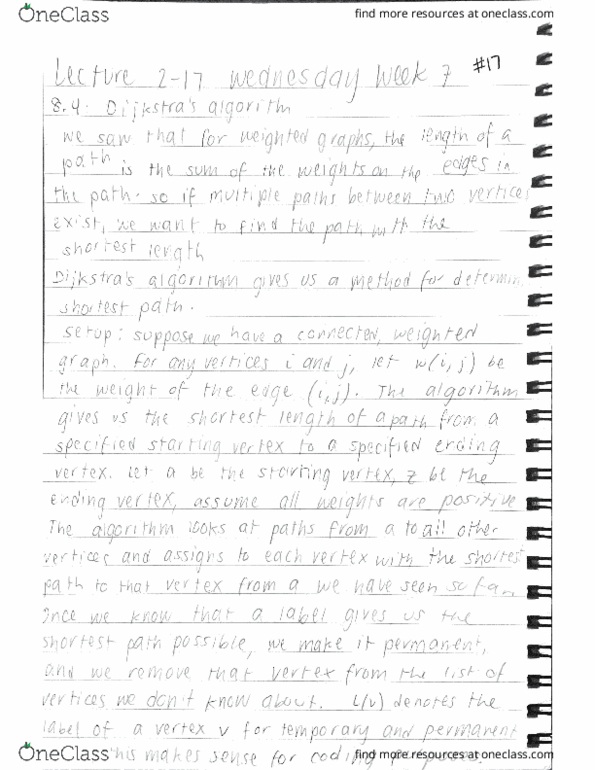 OneClass
find more resources at oneclass.com
Lecture 2-17 Wednesday Week 7 #17
8.4. Dijkstra's algorithm
we saw that for weighted graphs, the length of a
path is the sum of the weights on the edges in
the path. so if multiple paths between two vertices
exist, we want to find the path with the
shortest length
Dijkstra's algoritum gives us a method for determin
shortest path.
setup: suppose we have a connected, weighted
graph. for any vertices i and j, let w(i,j) be
the weight of the edge (i,j). The algorithm
gives us the shortest length of a path from a
specified starting vertex to a specified ending
vertex. Let a be the starting vertex, z be the
ending vertex, assume all weights are positive
The algorithm looks at paths from a to all other
vertices and assigns to each vertex with the shortest
path to that vertex from a we have seen so far
Once we know that a label gives us the
shortest path possible, we make it permanent,
and we remove that vertex from the list of
vertices we don't know about. L(v) denotes the
label of a vertex v for temporary and permanent
OneClass
this makes sense for coding
find more resources at oneclass.com